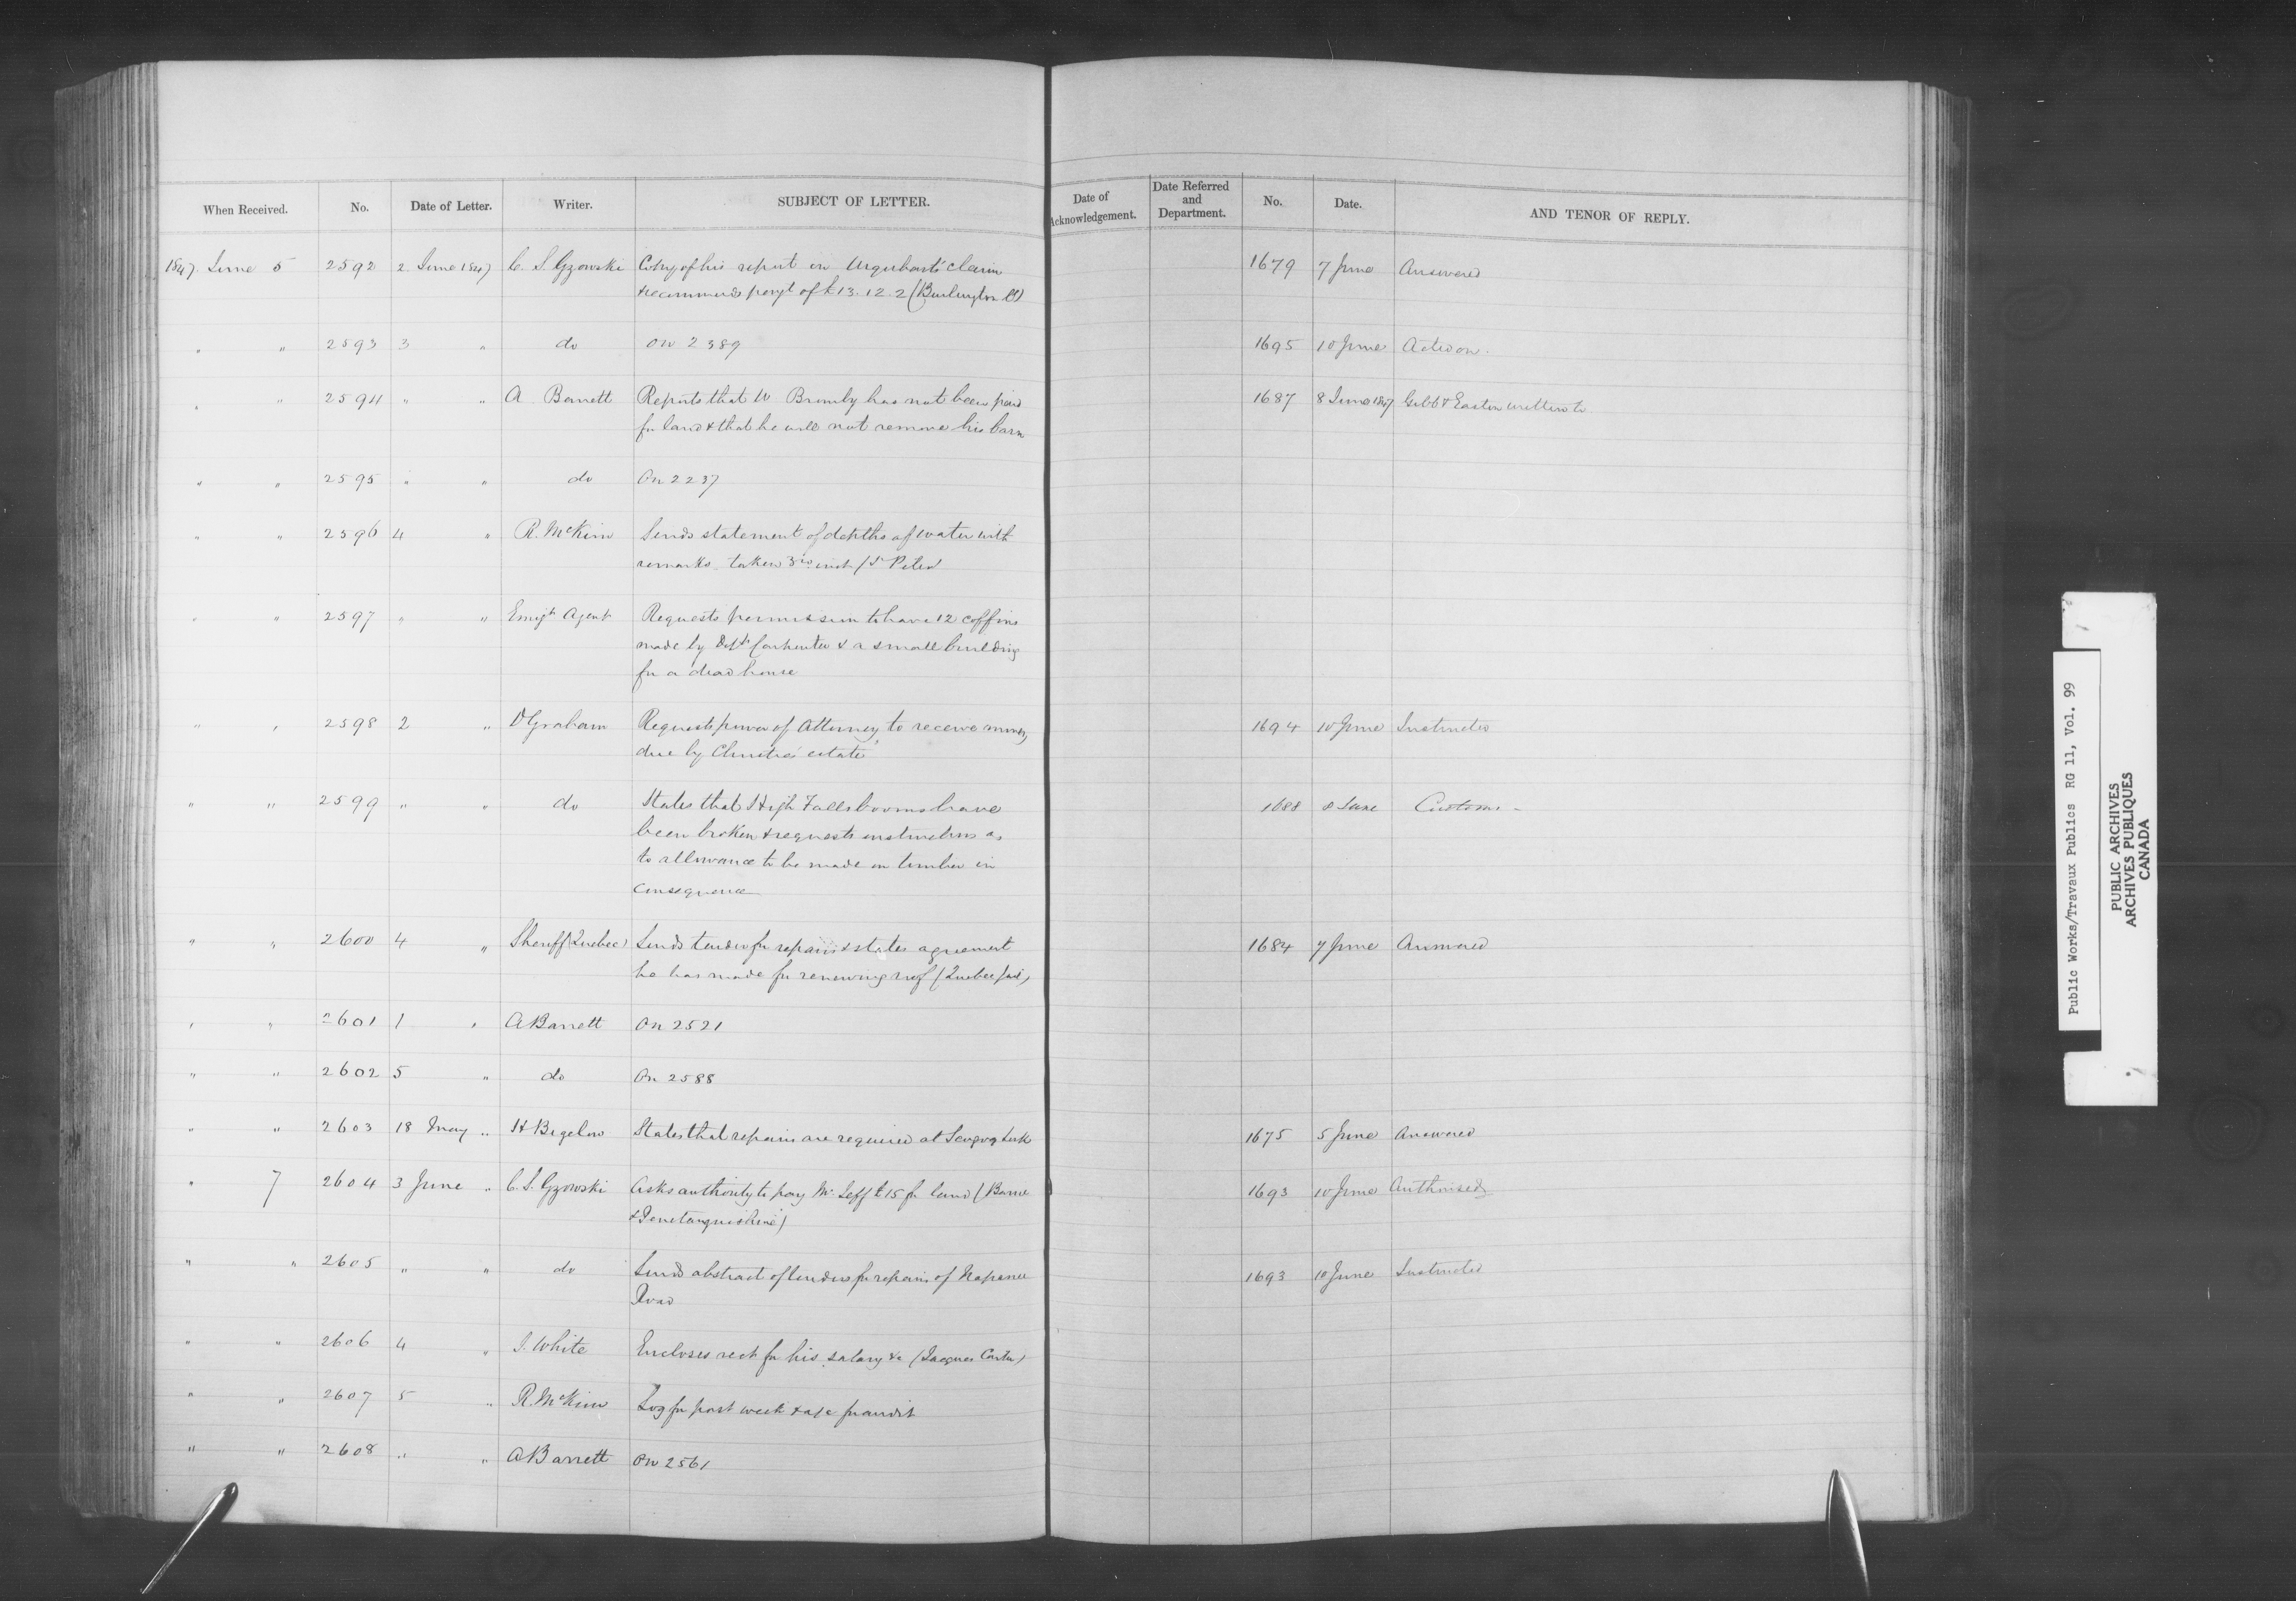 When Received. No. Date of Letter. Writer. SUBJECT OF LETTER. Date of Acknowledgement. Date Referred and Department. No. Date. AND TENOR OF REPLY.
1847 June 5 2592 2 June 1847 C. S. Gzowski Copy of his report on Urquhart's claim 1679 7 June Answered
& recommends payt of £13.12.2 (Burlington Cl)
" " 2593 3 " do on 2389 1695 10 June Acted on.
" " 2594 " " A Barrett Reports that W Bromby has not been paid 1687 8 June 1847 Gibb & Easton written to
for land & that he will not remove his barn
" " 2595 " " do On 2237
" " 2596 4 " R. McKim Sends statement of depths of water with
remarks taken 3rd inst / St Peter
" " 2597 " " Emigt Agent Requests permission to have 12 coffins
made by Dept Carpenter & a small building
for a dead house
" " 2598 2 " D Graham Requests power of Attorney to receive money 1694 10 June Instructed
due by Christie's estate
" " 2599 " " do States that High Falls booms have 1688 8 June Customs -
been broken & requests instructions as
to allowance to be made on timber in
consequence
" " 2600 4 " Sheriff (Quebec) Sends tender for repairs & states agreement 1684 7 June Answered
he has made for renewing roof (Quebec Jail)
" " 2601 1 " A Barrett On 2521
" " 2602 5 " do On 2588
" " 2603 18 May " H Bigelow States that repairs are required at Scugog Lock 1675 5 June Answered
" 7 2604 3 June " C. S. Gzowski Asks authority to pay Mr Jeff £15 for land (Barrie 1693 10 June Authorised
& Penetanguishine)
" " 2605 " " do Sends abstract of tenders for repairs of Napanee 1693 10 June Instructed
Road
" " 2606 4 " J. White Encloses rect for his salary &c (Jacques Cartier)
" " 2607 5 " R. McKim Log for past week & a/c for audit
" " 2608 " " A Barrett On 2561
Public Works/Travaux Publics RG 11, Vol. 99
PUBLIC ARCHIVES
ARCHIVES PUBLIQUES
CANADA